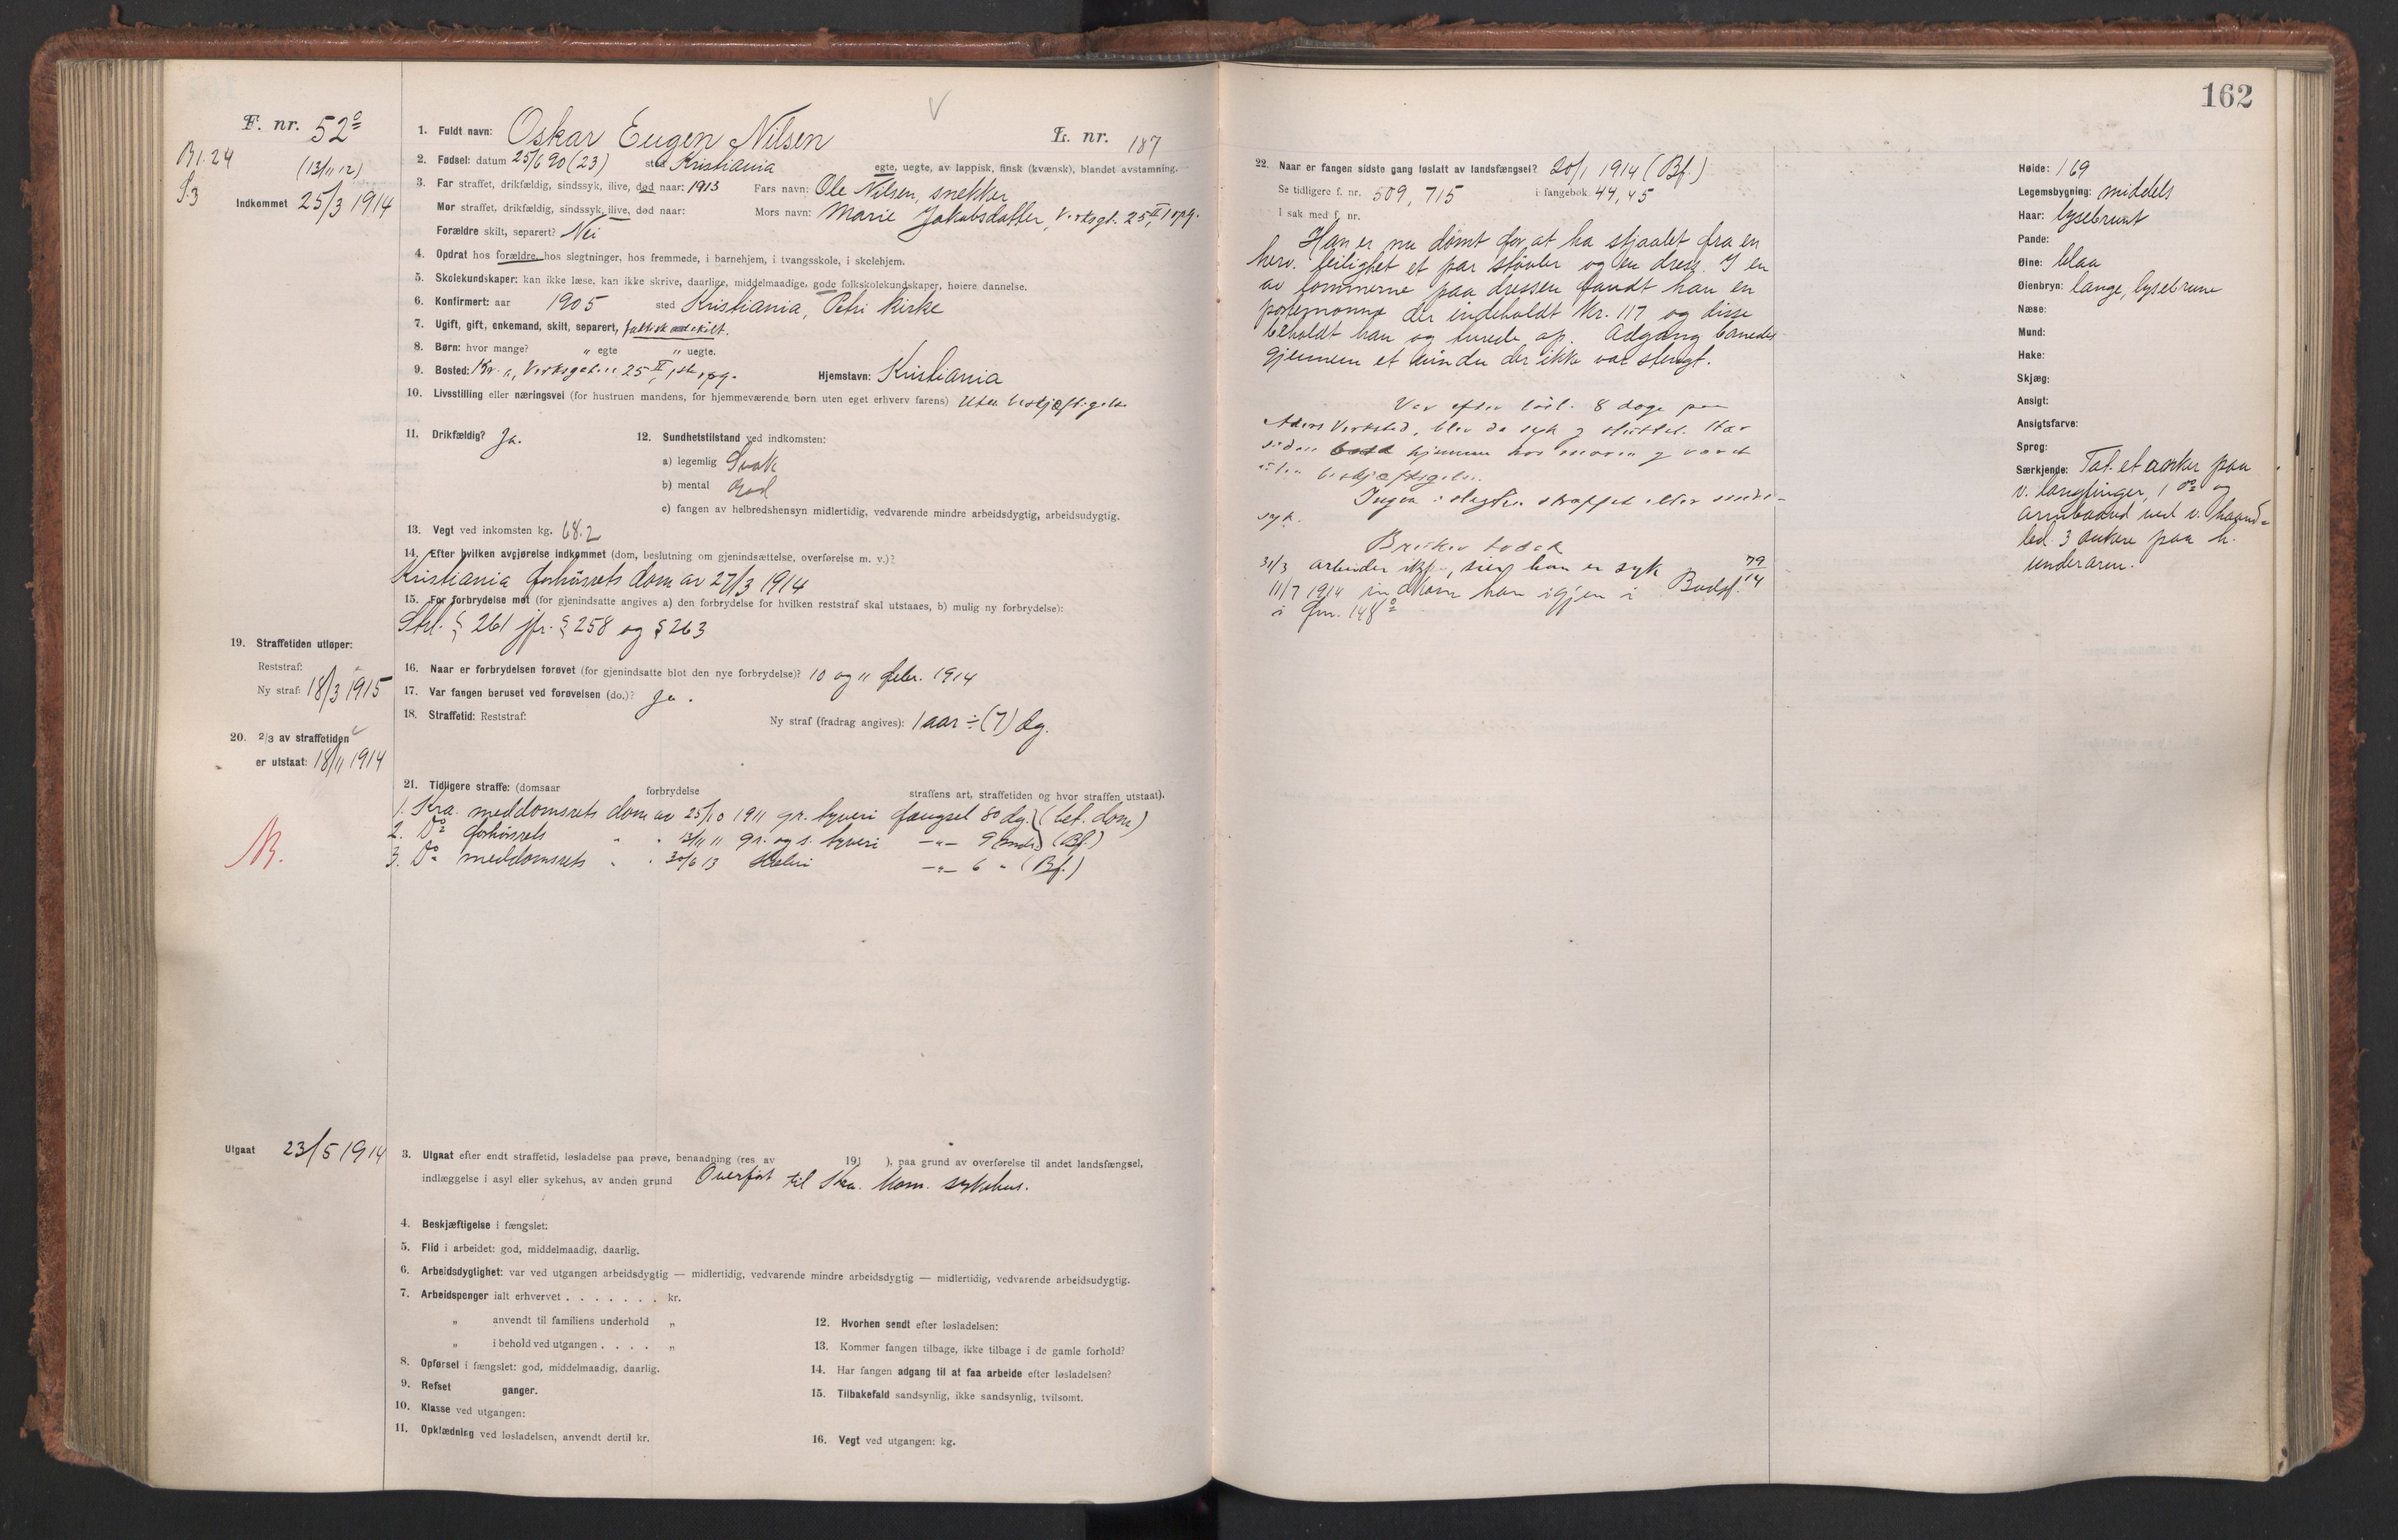 162
F. nr. 52º
B1.24
(13/11 12)
S.3
Indkommet 25/3 1914
1. Fuldt navn: Oskar Eugen Nilsen
L. nr. 187
2. Fødsel: datum 25/6 90 (23) sted Kristiania egte, uegte, av lappisk, finsk (kvænsk), blandet avstamning.
3. Far straffet, drikfældig, sindssyk, ilive, død naar: 1913 Fars navn: Ole Nilsen, snekker
Mor straffet, drikfældig, sindssyk, ilive, død naar: Mors navn: Marie Jakobsdatter, Verksgt. 25 II 1 opg.
Forældre skilt, separert? Nei
4. Opdrat hos forældre, hos slegtninger, hos fremmede, i barnehjem, i tvangsskole, i skolehjem.
5. Skolekundskaper: kan ikke læse, kan ikke skrive, daarlige, middelmaadige, gode folkskolekundskaper, høiere dannelse.
6. Konfirmert: aar 1905 sted Kristiania, Petri kirke
7. Ugift, gift, enkemand, skilt, separert, faktisk adskilt.
8. Børn: hvor mange? " egte " uegte.
9. Bosted: Kr.a, Verksgaten 25 II, 1ste opg. Hjemstavn: Kristiania
10. Livsstilling eller næringsvei (for hustruen mandens, for hjemmeværende børn uten eget erhverv farens) Uten beskjæftigelse
11. Drikfældig? Ja.
12. Sundhetstilstand ved indkomsten:
a) legemlig Svak
b) mental God
c) fangen av helbredshensyn midlertidig, vedvarende mindre arbeidsdygtig, arbeidsudygtig.
13. Vegt ved inkomsten kg. 68.2
14. Efter hvilken avgjørelse indkommet (dom, beslutning om gjenindsættelse, overførelse m. v.)?
Kristiania forhörsrets dom av 27/3 1914
15. For forbrydelse mot (for gjenindsatte angives a) den forbrydelse for hvilken reststraf skal utstaaes, b) mulig ny forbrydelse):
Strl. § 261 jfr. § 258 og § 263
16. Naar er forbrydelsen forøvet (for gjenindsatte blot den nye forbrydelse)? 10 og 11 febr. 1914
17. Var fangen beruset ved forøvelsen (do.)? Ja.
18. Straffetid: Reststraf: Ny straf (fradrag angives): 1 aar ÷ (7) dg.
19. Straffetiden utløper:
Reststraf: "
Ny straf: 18/3 1915
20. 2/3 av straffetiden
er utstaat: 18/11 1914
21. Tidligere straffe: (domsaar forbrydelse straffens art, straffetiden og hvor straffen utstaat).
1. Kra. meddomsrets dom av 25/10 1911 gr. tyveri fængsel 80 dg. (bet. dom)
2. Dº forhörsrets " " 13/11 11 gr. og s. tyveri —"— 9 mdr. (Bf.)
3. Dº meddomsrets " " 30/6 13 Hæleri —"— 6 " (Bf.)
Utgaat 23/5 1914
3. Utgaat efter endt straffetid, løsladelse paa prøve, benaadning (res. av 191 ), paa grund av overførelse til andet landsfængsel,
indlæggelse i asyl eller sykehus, av anden grund Overført til Kra. kom. sykehus.
4. Beskjæftigelse i fængslet:
5. Flid i arbeidet: god, middelmaadig, daarlig.
6. Arbeidsdygtighet: var ved utgangen arbeidsdygtig — midlertidig, vedvarende mindre arbeidsdygtig — midlertidig, vedvarende arbeidsudygtig.
7. Arbeidspenger ialt erhvervet . . . . . . . kr.
" anvendt til familiens underhold "
" i behold ved utgangen . . . . "
8. Opførsel i fængslet: god, middelmaadig, daarlig.
9. Refset ganger.
10. Klasse ved utgangen:
11. Opklædning ved løsladelsen, anvendt dertil kr.
12. Hvorhen sendt efter løsladelsen:
13. Kommer fangen tilbage, ikke tilbage i de gamle forhold?
14. Har fangen adgang til at faa arbeide efter løsladelsen?
15. Tilbakefald sandsynlig, ikke sandsynlig, tvilsomt.
16. Vegt ved utgangen: kg.
22. Naar er fangen sidste gang løslatt av landsfængsel? 20/1 1914 (Bf.)
Se tidligere f. nr. 509, 715 i fangebok 44, 45
I sak med f. nr.
Han er nu dömt for at ha stjaalet fra en
herv. leilighet et par stövler og en dress. I en
av lommerne paa dressen fandt han en
portemonnæ der indeholdt kr. 117 og disse
beholdt han og turede op. Adgang banedes
gjennem et vindu der ikke var stengt.
Var efter lösl. 8 dage paa
Akers Verksted, blev da syk og sluttet. Har
siden hjemme hos moren og været
uten beskjæftigelse.
Ingen i slegten straffet eller sinds-
syk.
Bruker tobak
31/3 arbeider ikke, sier han er syk 79/14
11/7 1914 indkom han igjen i Bodsf.
i fnr. 148º
Høide: 169
Legemsbygning: middels
Haar: lysebrunt
Pande:
Øine: blaa
Øienbryn: lange, lysebrune
Næse:
Mund:
Hake:
Skjæg:
Ansigt:
Ansigtsfarve:
Sprog:
Særkjende: Tat. et anker paa
v. langfinger, 1 dº og
armbaand ved v. haand-
led. 3 ankere paa h.
underarm.